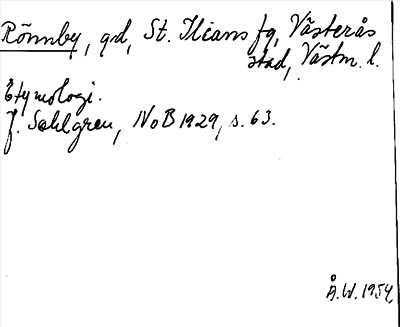 Rönnby, grd, St. Ilians fg, Västerås
stad, Västm. l.
Etymologi.
J. Sahlgren, NoB 1929, s. 63.
Å.W. 1954